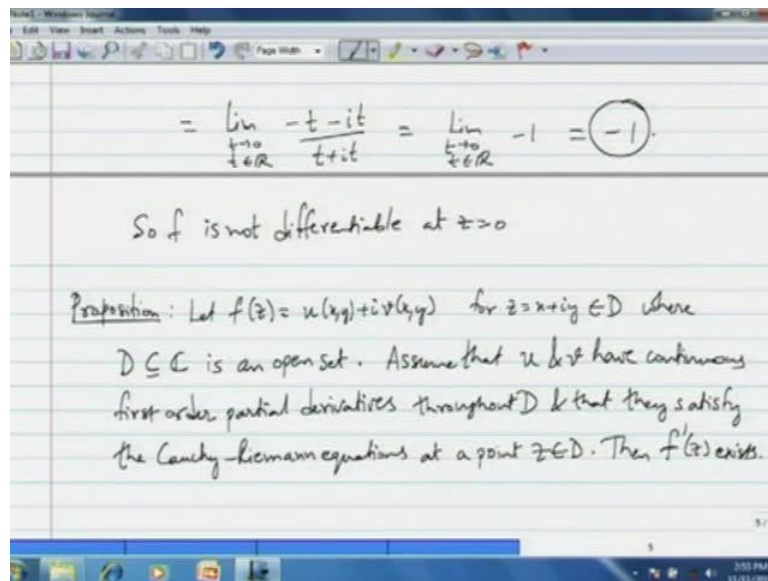 Note1 - Windows Journal
Edit View Insert Actions Tools Help
Page Width
= lim t→0 t∈ℝ (-t-it)/(t+it) = lim t→0 t∈ℝ -1 = -1.
So f is not differentiable at z=0
Proposition: Let f(z) = u(x,y)+iv(x,y) for z=x+iy ∈ D where
D ⊆ ℂ is an open set. Assume that u & v have continuous
first order partial derivatives throughout D & that they satisfy
the Cauchy-Riemann equations at a point z∈D. Then f'(z) exists.
5
3:53 PM